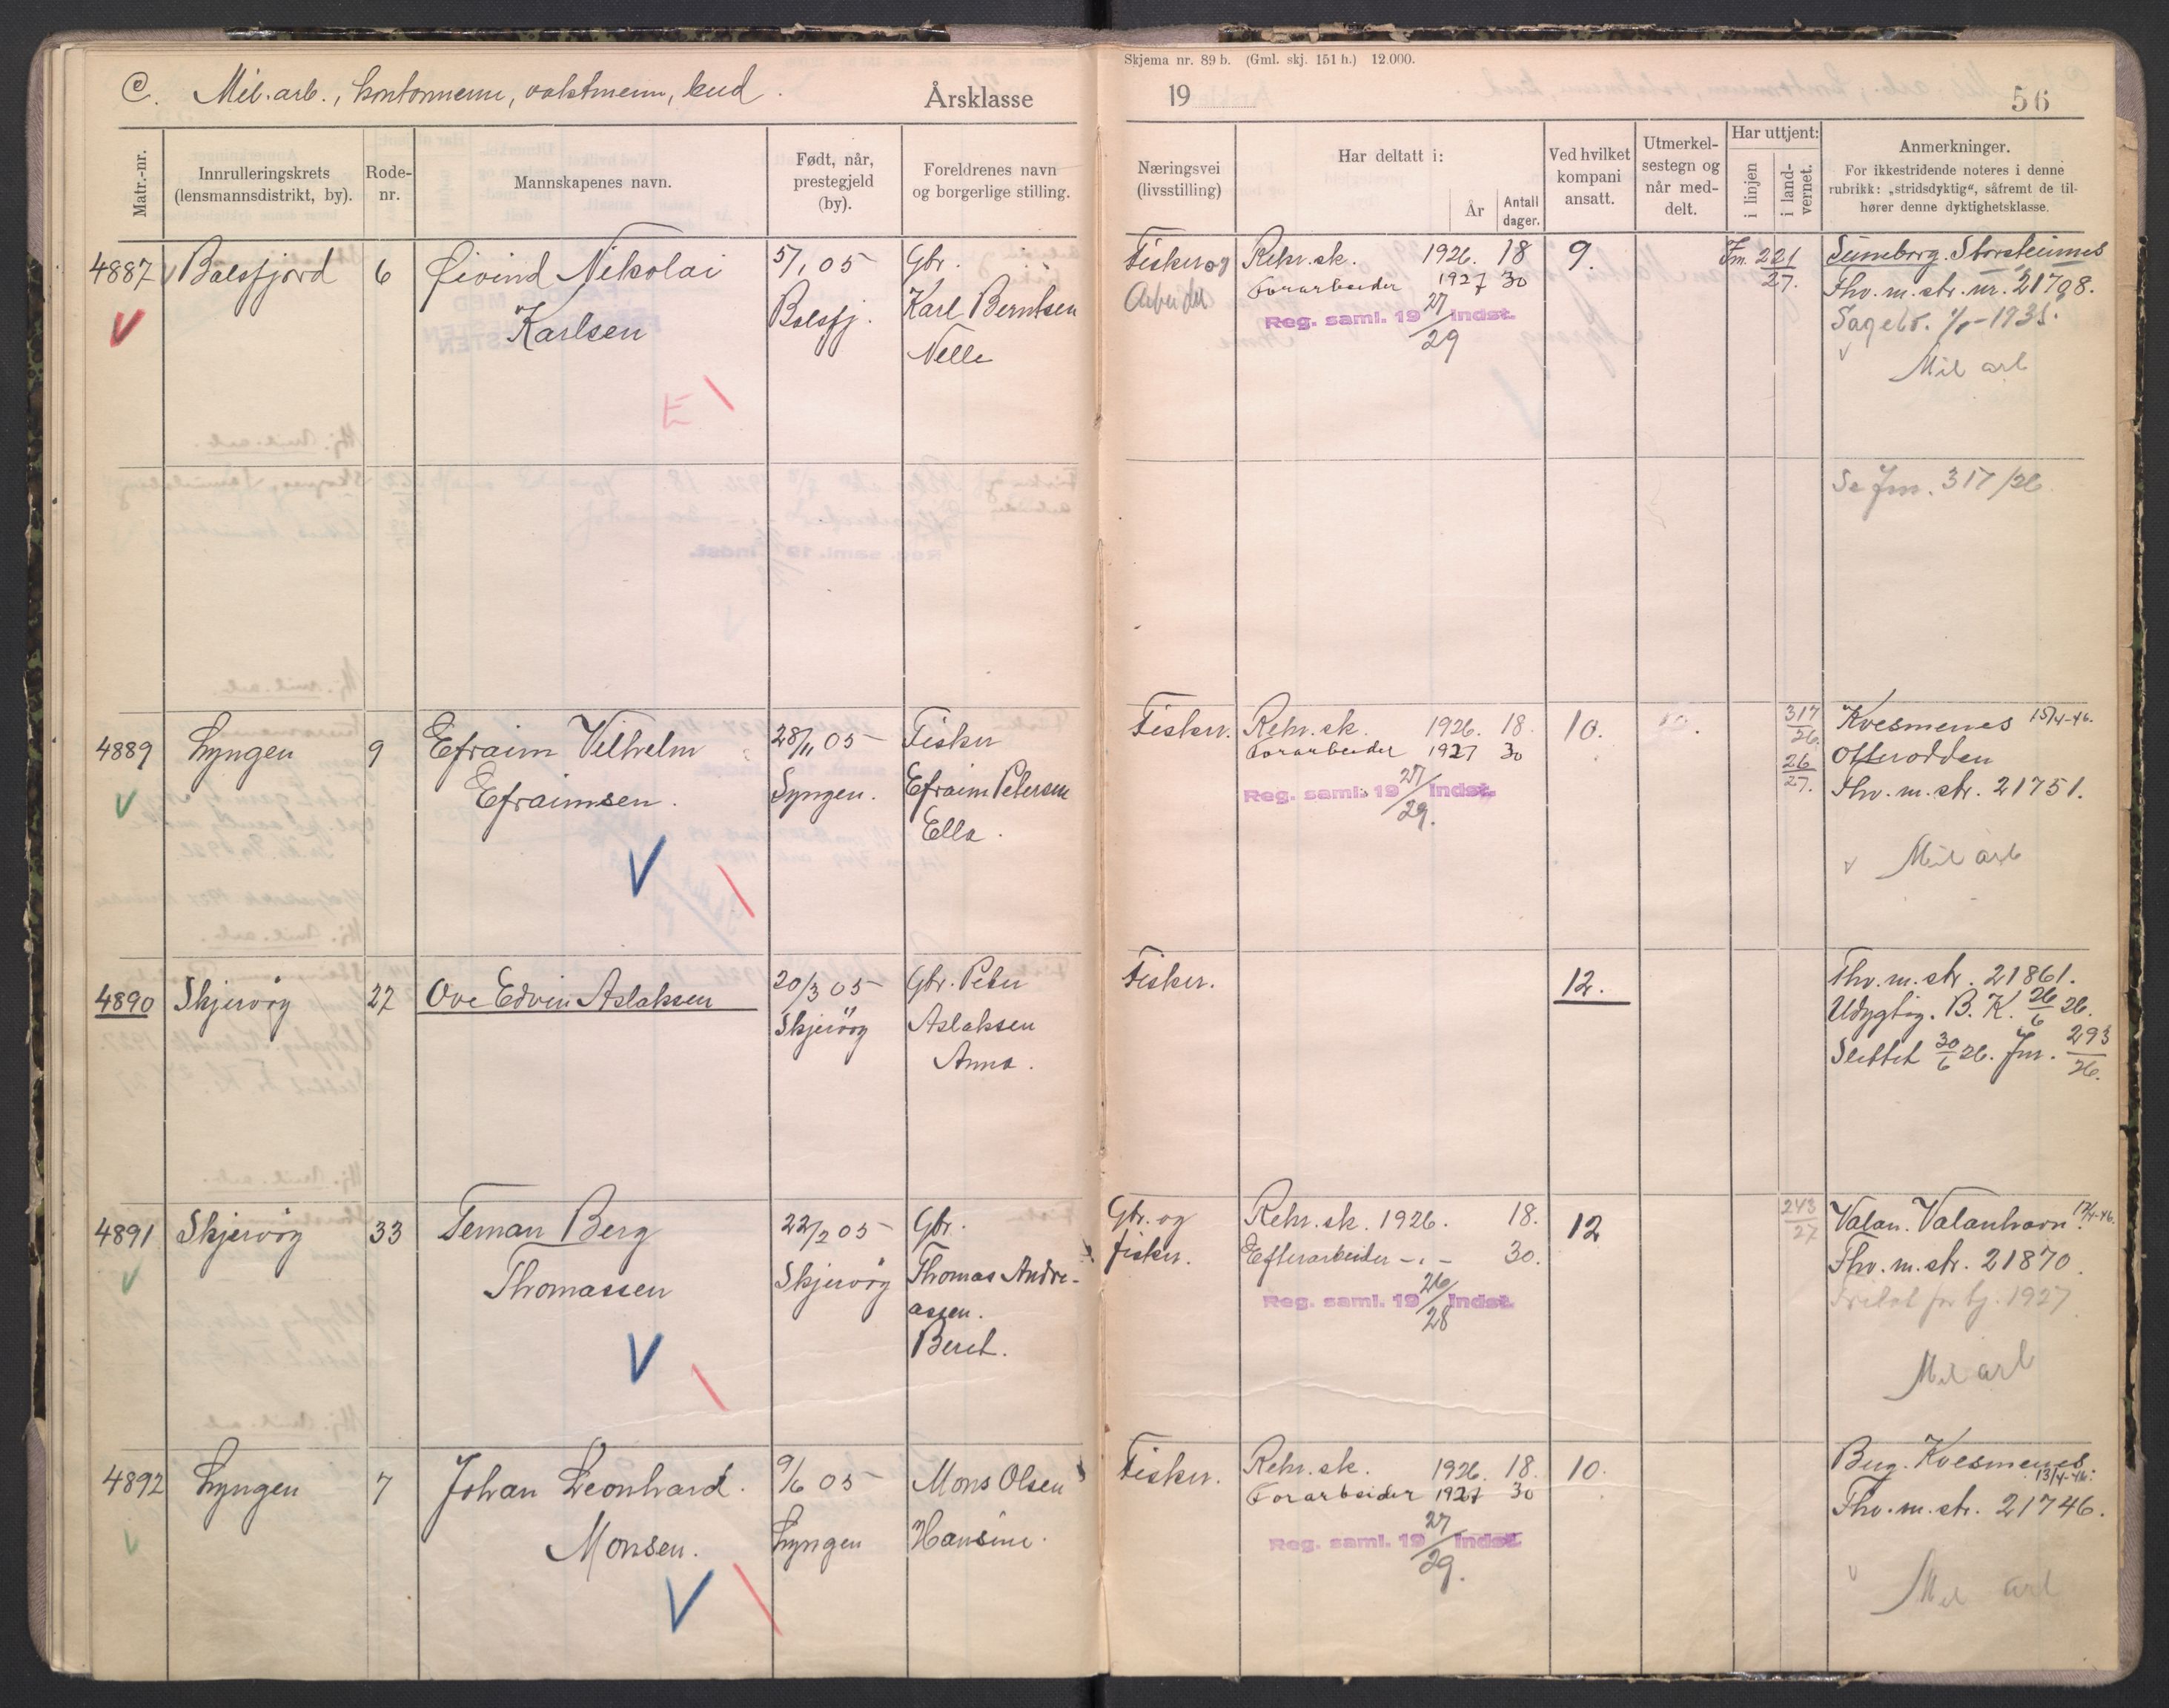 C. Mil. arb., kontormenn, vaktmenn, bud.
Årsklasse
Skjema nr. 89 b. (Gml. skj. 151 h.) 12.000.
19
56
Matr.-nr.
Innrulleringskrets (lensmannsdistrikt, by).
Rode-nr.
Mannskapenes navn.
Født, når, prestegjeld (by).
Foreldrenes navn og borgerlige stilling.
Næringsvei (livsstilling)
Har deltatt i:
År
Antall dager.
Ved hvilket kompani ansatt.
Utmerkel-sestegn og når med-delt.
Har uttjent:
i linjen
i land-vernet.
Anmerkninger.
For ikkestridende noteres i denne rubrikk: „stridsdyktig“, såfremt de til-hører denne dyktighetsklasse.
4887 Balsfjord 6 Øivind Nikolai 5/1 05 Gbr.
Karlsen Balsfj. Karl Berntsen
Nelle
E
Fisker og Rekr.sk. 1926. 18 9. Jm. 221
Arbeider Forarbeider 1927 30 27.
Reg. saml. 19 27/29 indst.
Storsteinnes
Thv. m. str. nr. 21798.
Mil arb
Se Jm. 317/26
4889 Lyngen 9 Efraim Vilhelm 28/11 05 Fisker
Efraimsen. Lyngen. Efraim Petersen
Ella.
Fisker. Rekr.sk. 1926. 18. 10. 317/26
Forarbeider 1927 30 26/27.
Reg. saml. 19 27/29. indst.
Kvesmenes 15/4-46.
Otterodden
Thv. m. str. 21751.
Mil arb
4890 Skjervöy 27 Ove Edvin Aslaksen 20/3 05 Gbr. Peder
Skjervöy Aslaksen
Anna.
Fisker. 12.
Thv. m. str. 21861.
Udygtig. B. K. 26/6 26.
Slettet 30/6 26. Jm. 293/26.
4891 Skjervöy 33 Teman Berg 22/2 05 Gbr.
Thomassen Skjervöy Thomas Andre-
assen.
Beret.
Gbr. og Rekr.sk. 1926. 18. 12 243/27
fisker. Efterarbeider -"- 30.
Reg. saml. 19 26/28 indst.
Valan. Valanhavn. 17/4-46.
Thv. m. str. 21870.
1927
Mil arb
4892 Lyngen 7 Johan Leonhard. 9/6 05 Mons Olsen
Monsen. Lyngen Hansine.
Fisker. Rekr.sk. 1926. 18. 10.
Forarbeider 1927 30
Reg. saml. 19 27/29. indst.
Kvesmenes
13/4-46.
Thv. m. str. 21746.
Mil arb